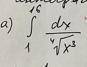 а) ∫₁¹⁶ dx / ⁴√x³